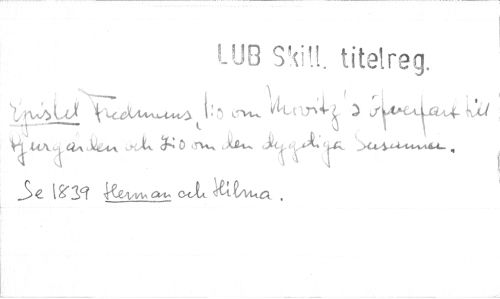 LUB Skill. titelreg.
Epistel Fredmans, :|:o om Movitz's öfverfart till
Djurgården och :|:o om den dygdiga Susanna.
Se 1839 Herman och Hilma.